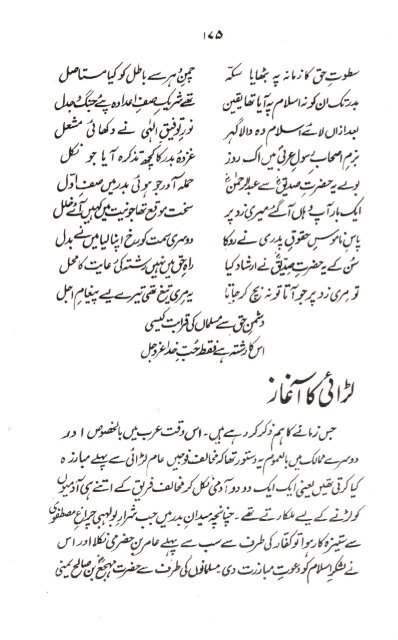 ۱۷۵
سطوتِ حق کا زمانہ پہ بٹھایا سکّہ چمنِ دہر سے باطل کو کیا مستاصل
بدر تک ان کو نہ اسلام پہ آیا تھا یقین تھے شریکِ صفِ اعدا وہ پئے جنگ و جدل
بعد ازاں لائے اسلام وہ والا گہر نورِ توفیقِ الٰہی نے دکھائی مشعل
بزمِ اصحابِ رسولِ عربیؐ میں اک روز غزوۂ بدر کا کچھ تذکرہ آیا جو نکل
بولے یہ حضرتِ صدیقؓ سے عبدالرحمٰنؓ حملہ آور جو ہوئی بدر میں صفِ اول
ایک بار آپ وہاں آ گئے میری زد پر سخت موقع تھا جو نیت میں کہیں آئے خلل
پاسِ ناموسِ حقوقِ پدری نے روکا دوسری سمت کو رخ اپنا لیا میں نے بدل
سُن کے یہ حضرتِ صدیقؓ نے ارشاد کیا راہِ حق میں نہیں رشتہ کی رعایت کا محل
تو مری زد پر جو آتا تو نہ بچ کر جاتا یہ مری تیغ تھی تیرے لیے پیغامِ اجل
دشمنِ حق سے مسلماں کی قرابت کیسی
اس کا رشتہ ہے فقط حُبِّ خدا عزوجل
لڑائی کا آغاز
جس زمانے کا ہم ذکر کر رہے ہیں۔ اس وقت عرب میں بالخصوص اور
دوسرے ممالک میں بالعموم یہ دستور تھا کہ مخالف فوجیں عام لڑائی سے پہلے مبارزہ
کیا کرتی تھیں یعنی ایک ایک دو دو آدمی نکل کر مخالف فریق کے اتنے ہی آدمیوں
کو لڑنے کے لیے للکارتے تھے۔ چنانچہ میدانِ بدر میں جب شرارِ بولہبی چراغِ مصطفوی
سے ستیزہ کار ہوا تو کفار کی طرف سے سب سے پہلے عامر بن حضرمی نکلا اور اس
نے لشکرِ اسلام کو دعوتِ مبارزت دی۔ مسلمانوں کی طرف سے حضرت مہجعؓ بن صالح یمنی